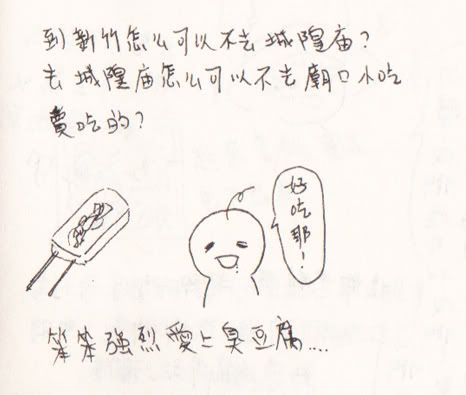 到新竹怎么可以不去城隍庙?
去城隍庙怎么可以不去廟口小吃
賣吃的?
好吃那!
笨笨強烈愛上臭豆腐....